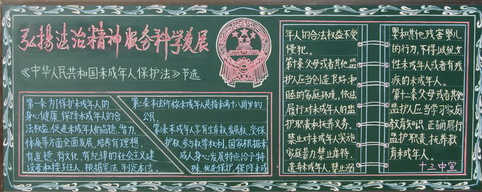 弘扬法治精神服务科学发展
《中华人民共和国未成年人保护法》节选
第一条为了保护未成年人的
身心健康,保障未成年人的合
法权益,促进未成年人在品德、智力、
体质等方面全面发展,培养有理想、
有道德、有文化、有纪律的社会主义建
设者和接班人,根据宪法,制定本法
第二条本法所称未成年人是指未满十八周岁的
公民
第三条未成年人享有生存权、发展权、受保
护权、参与权等权利,国家根据未
成人身心发展特点给予特
殊、优先保护,保障未成
年人的合法权益不受
侵犯。
第十条父母或者其他监
护人应当创造良好、和
睦的家庭环境,依法
履行对未成年人的监
护职责和抚养义务。
禁止对未成年人实施
家庭暴力,禁止虐待、
遗弃未成年人,禁止溺
婴和其他残害婴儿
的行为,不得歧视女
性未成年人或者有残
疾的未成年人。
第十二条父母或者其他
监护人应当学习家庭
教育知识,正确履行
监护职责,抚养教
育未成年人。
十三中宣